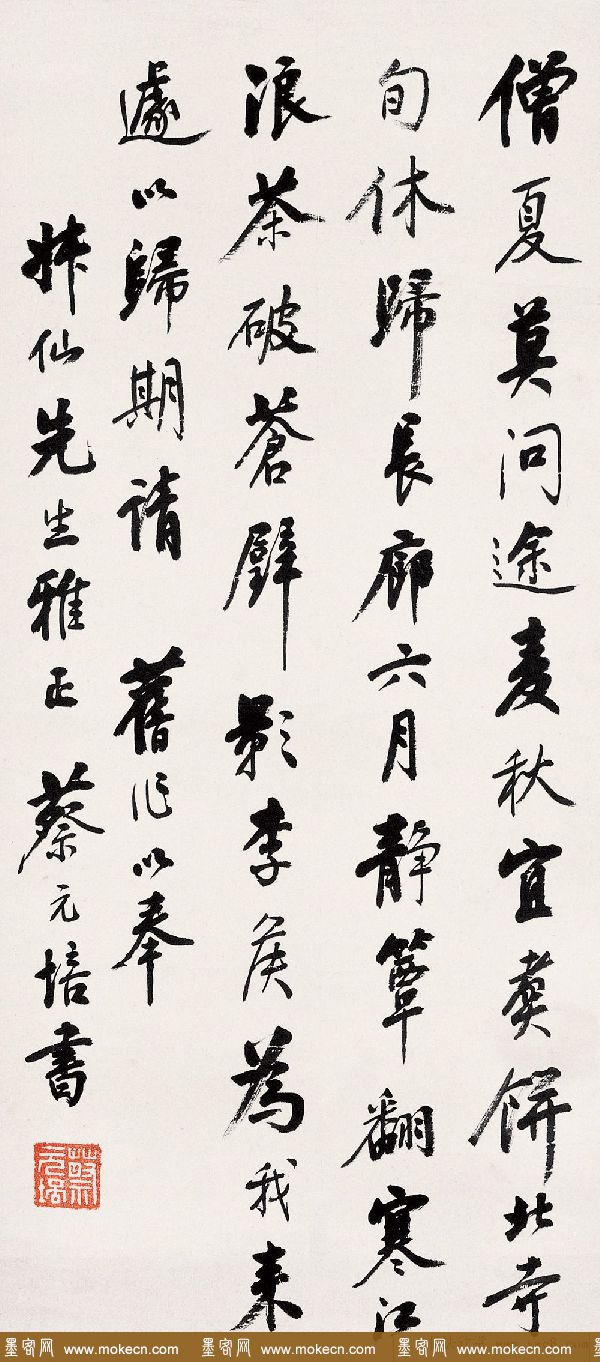 僧夏莫问途麦秋宜煑餅北寺
旬休歸长廊六月静簟翻寒江
浪茶破蒼壁影李侯為我来
遽以歸期請 舊作以奉
仙先生雅正 蔡元培書
蔡元培
墨客网 www.mokecn.com 墨客网 www.mokecn.com 墨客网 www.mokecn.com